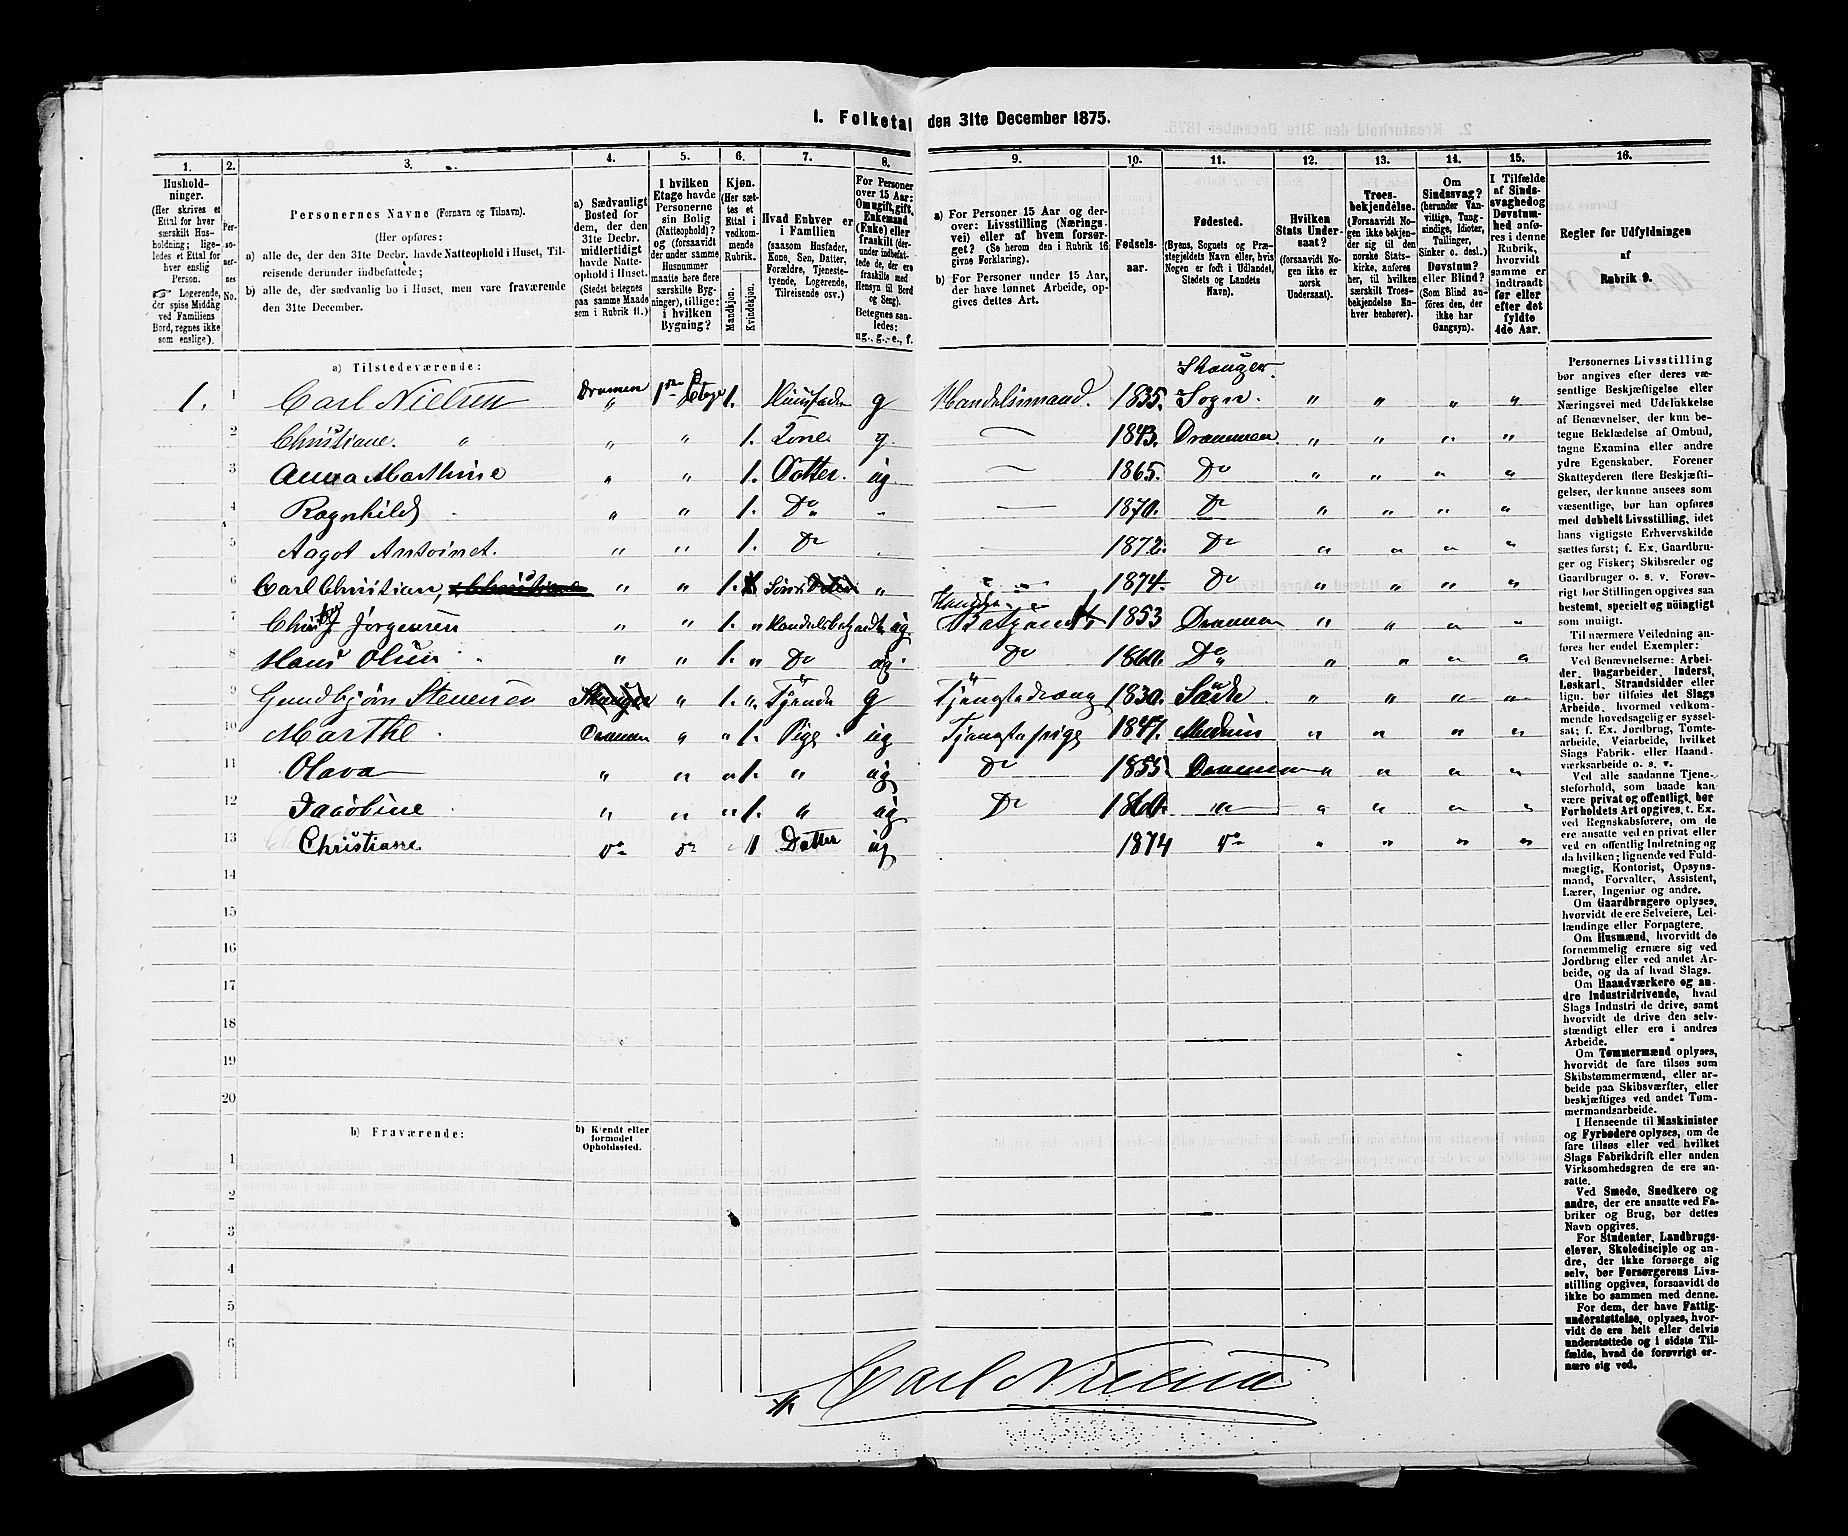 1. Folketal den 31te December 1875.
1. 2. 3. 4. 5. 6. 7. 8. 9. 10. 11. 12. 13. 14. 15. 16.
Hushold-
ninger.
(Her skrives et
Ettal for hver
særskilt Hus-
holdning; lige-
ledes et Ettal for
hver enslig
Person.
☞ Logerende,
der spise Middag
ved Familiens
Bord, regnes ikke
som enslige).
Per-
so-
ner-
nes
No.
Personernes Navne (Fornavn og Tilnavn).
(Her opføres:
a) alle de, der den 31te Decbr. havde Natteophold i Huset, Til-
reisende derunder indbefattede;
b) alle de, der sædvanlig bo i Huset, men vare fraværende
den 31te December.
a) Sædvanligt
Bosted for
dem, der den
31te Decbr.
midlertidigt
havde Natte-
ophold i Huset.
(Stedet betegnes
paa samme Maade
som i Rubrik 11.)
I hvilken
Etage havde
Personerne
sin Bolig
(Natteophold)?
og (forsaavidt
der under samme
Husnummer
maatte høre flere
særskilte Byg-
ninger), tillige:
i hvilken
Bygning?
Kjøn.
(Her sæt-
tes et
Ettal i
vedkom-
mende
Rubrik.
Mandkjøn.
Kvindekjøn.
Hvad Enhver er
i Familien
(saasom Husfader,
Kone, Søn, Datter,
Forældre, Tjeneste-
tyende, Logerende,
Tilreisende osv.)
For Personer
over 15 Aar:
Om ugift, gift,
Enkemand
(Enke) eller
fraskilt (der-
under indbefat-
tede de, der ere
fraskilte med
Hensyn til Bord
og Seng).
Betegnes saa-
ledes:
ug., g., e., f.
a) For Personer 15 Aar og der-
over: Livsstilling (Nærings-
vei) eller af hvem forsør-
get? (Se herom den i Rubrik 16
givne Forklaring).
b) For Personer under 15 Aar,
der have lønnet Arbeide, op-
gives dettes Art.
Fødsels-
aar.
Fødested.
(Byens, Sognets og Præ-
stegjeldets Navn eller, hvis
Nogen er født i Udlandet,
Stedets og Landets
Navn).
Hvilken
Stats Under-
saat?
(forsaavidt No-
gen ikke er
norsk
Undersaat).
Troes-
bekjendelse.
(Forsaavidt No-
gen ikke bekjen-
der sig til den
norske Stats-
kirke, anføres
her, til hvilken
særskilt Troes-
bekjendelse En-
hver henhører).
Om
Sindssvag?
(herunder Van-
vittige, Tung-
sindige, Idioter,
Tullinger,
Sinker o. desl.)
Døvstum?
eller Blind?
(Som Blind an-
føres den, der
ikke har
Gangsyn).
I Tilfælde
af Sinds-
svaghed og
Døvstum-
hed anfø-
res i denne
Rubrik,
hvorvidt
samme er
indtraadt
før eller
efter det
fyldte
4de Aar.
Regler for Udfyldningen
af
Rubrik 9.
a) Tilstedeværende:
Skauger
1. 1 Carl Nielsen Dramen " 1ste Etage 1. Huusfader g Handelsmand. 1835. Sogn. " " " "
2 Christiane. " " " 1. Kone g — 1843. Drammen " " " "
3 Anna Marthine " " 1. Datter. ug — 1865. Do " " " "
4 Ragnhild " " 1. Do " — 1870. Do " " " "
5 Aagot Antoinet. " " 1. Do 1872. Do " " " "
6 Carl Christian, " " 1. Søn " 1874. Do " " " "
7 Jørgensen " " 1. " Handelsbetjendt ug. Betjendt 1853 Drammen " " " "
8 Hans Olsen " " 1. " Do ug. Do 1860. Do " " " "
9 Gundbjørn Stenersen " 1. " Tjende g Tjenestedreng 1830. " " " "
10 Marthe. Dramen " " 1. Pige. ug Tjenestepige 1847. " " " "
11 Olava " " " 1. " ug Do 1855. Drammen " " " "
12 Jacobine " " " 1. " ug Do 1860. " " " " "
13 Christiane do do 1 Datter ug 1874 do " " " "
14
15
16
17
18
19
20
b) Fraværende:
b) Kjendt eller
formodet
Opholdssted.
1
2
3
4
5
6
Personernes Livsstilling
bør angives efter deres væ-
sentlige Beskjæftigelse eller
Næringsvei med Udelukkelse
af Benævnelser, der kun be-
tegne Beklædelse af Ombud,
tagne Examina eller andre
ydre Egenskaber. Forener
Skatteyderen flere Beskjæfti-
gelser, der kunne ansees som
væsentlige, bør han opføres
med dobbelt Livsstilling, idet
hans vigtigste Erhvervskilde
sættes først; f. Ex. Gaardbru-
ger og Fisker; Skibsreder og
Gaardbruger o. s. v. Forøv-
rigt bør Stillingen opgives saa
bestemt, specielt og nöiagtigt
som muligt.
Til nærmere Veiledning an-
føres her endel Exempler:
Ved Benævnelserne: Arbei-
der, Dagarbeider, Inderst,
Løskarl, Strandsidder eller
lign. bør tilføies det Slags
Arbeide, hvormed vedkom-
mende hovedsagelig er syssel-
sat; f. Ex. Jordbrug, Tomte-
arbeide, Veiarbeide, hvilket
Slags Fabrik- eller Haand-
værksarbeide o. s. v.
Ved alle saadanne Tjene-
steforhold, som baade kan
være privat og offentligt, bør
Forholdets Art opgives, t. Ex.
ved Regnskabsførere, om de
ere ansatte ved en privat eller
ved en offentlig Indretning og
da hvilken; lignende ved Fuld-
mægtig, Kontorist, Opsyns-
mand, Forvalter, Assistent,
Lærer, Ingeniør og andre.
Om Gaardbrugere oplyses,
hvorvidt de ere Selveiere, Lei-
lændinge eller Forpagtere.
Om Husmænd, hvorvidt de
fornemmelig ernære sig ved
Jordbrug eller ved andet Ar-
beide, og da af hvad Slags.
Om Haandværkere og an-
dre Industridrivende, hvad
Slags Industri de drive, samt
hvorvidt de drive den selv-
stændigt eller ere i andres
Arbeide.
Om Tømmermænd oplyses,
hvorvidt de fare tilsøs som
Skibstømmermænd, eller ar-
beide paa Skibsværfter, eller
beskjæftiges ved andet Tøm-
mermandsarbeide.
I Henseende til Maskinister
og Fyrbødere oplyses, om de
fare tilsøs eller ved hvilket
Slags Fabrikdrift eller anden
Virksomhedsgren de ere an-
satte.
Ved Smede, Snedkere og
andre, der ere ansatte ved Fa-
briker og Brug, bør dettes
Navn opgives.
For Studenter, Landbrugs-
elever, Skoledisciple og an-
dre, der ikke forsørge sig
selv, bør Forsørgerens Livs-
stilling opgives, forsaavidt de
ikke bo sammen med denne.
For dem, der have Fattig-
understøttelse, oplyses, hvor-
vidt de ere helt eller delvis
understøttede og i sidste Til-
fælde, hvad de forøvrigt er-
nære sig ved.
Carl Nielsen